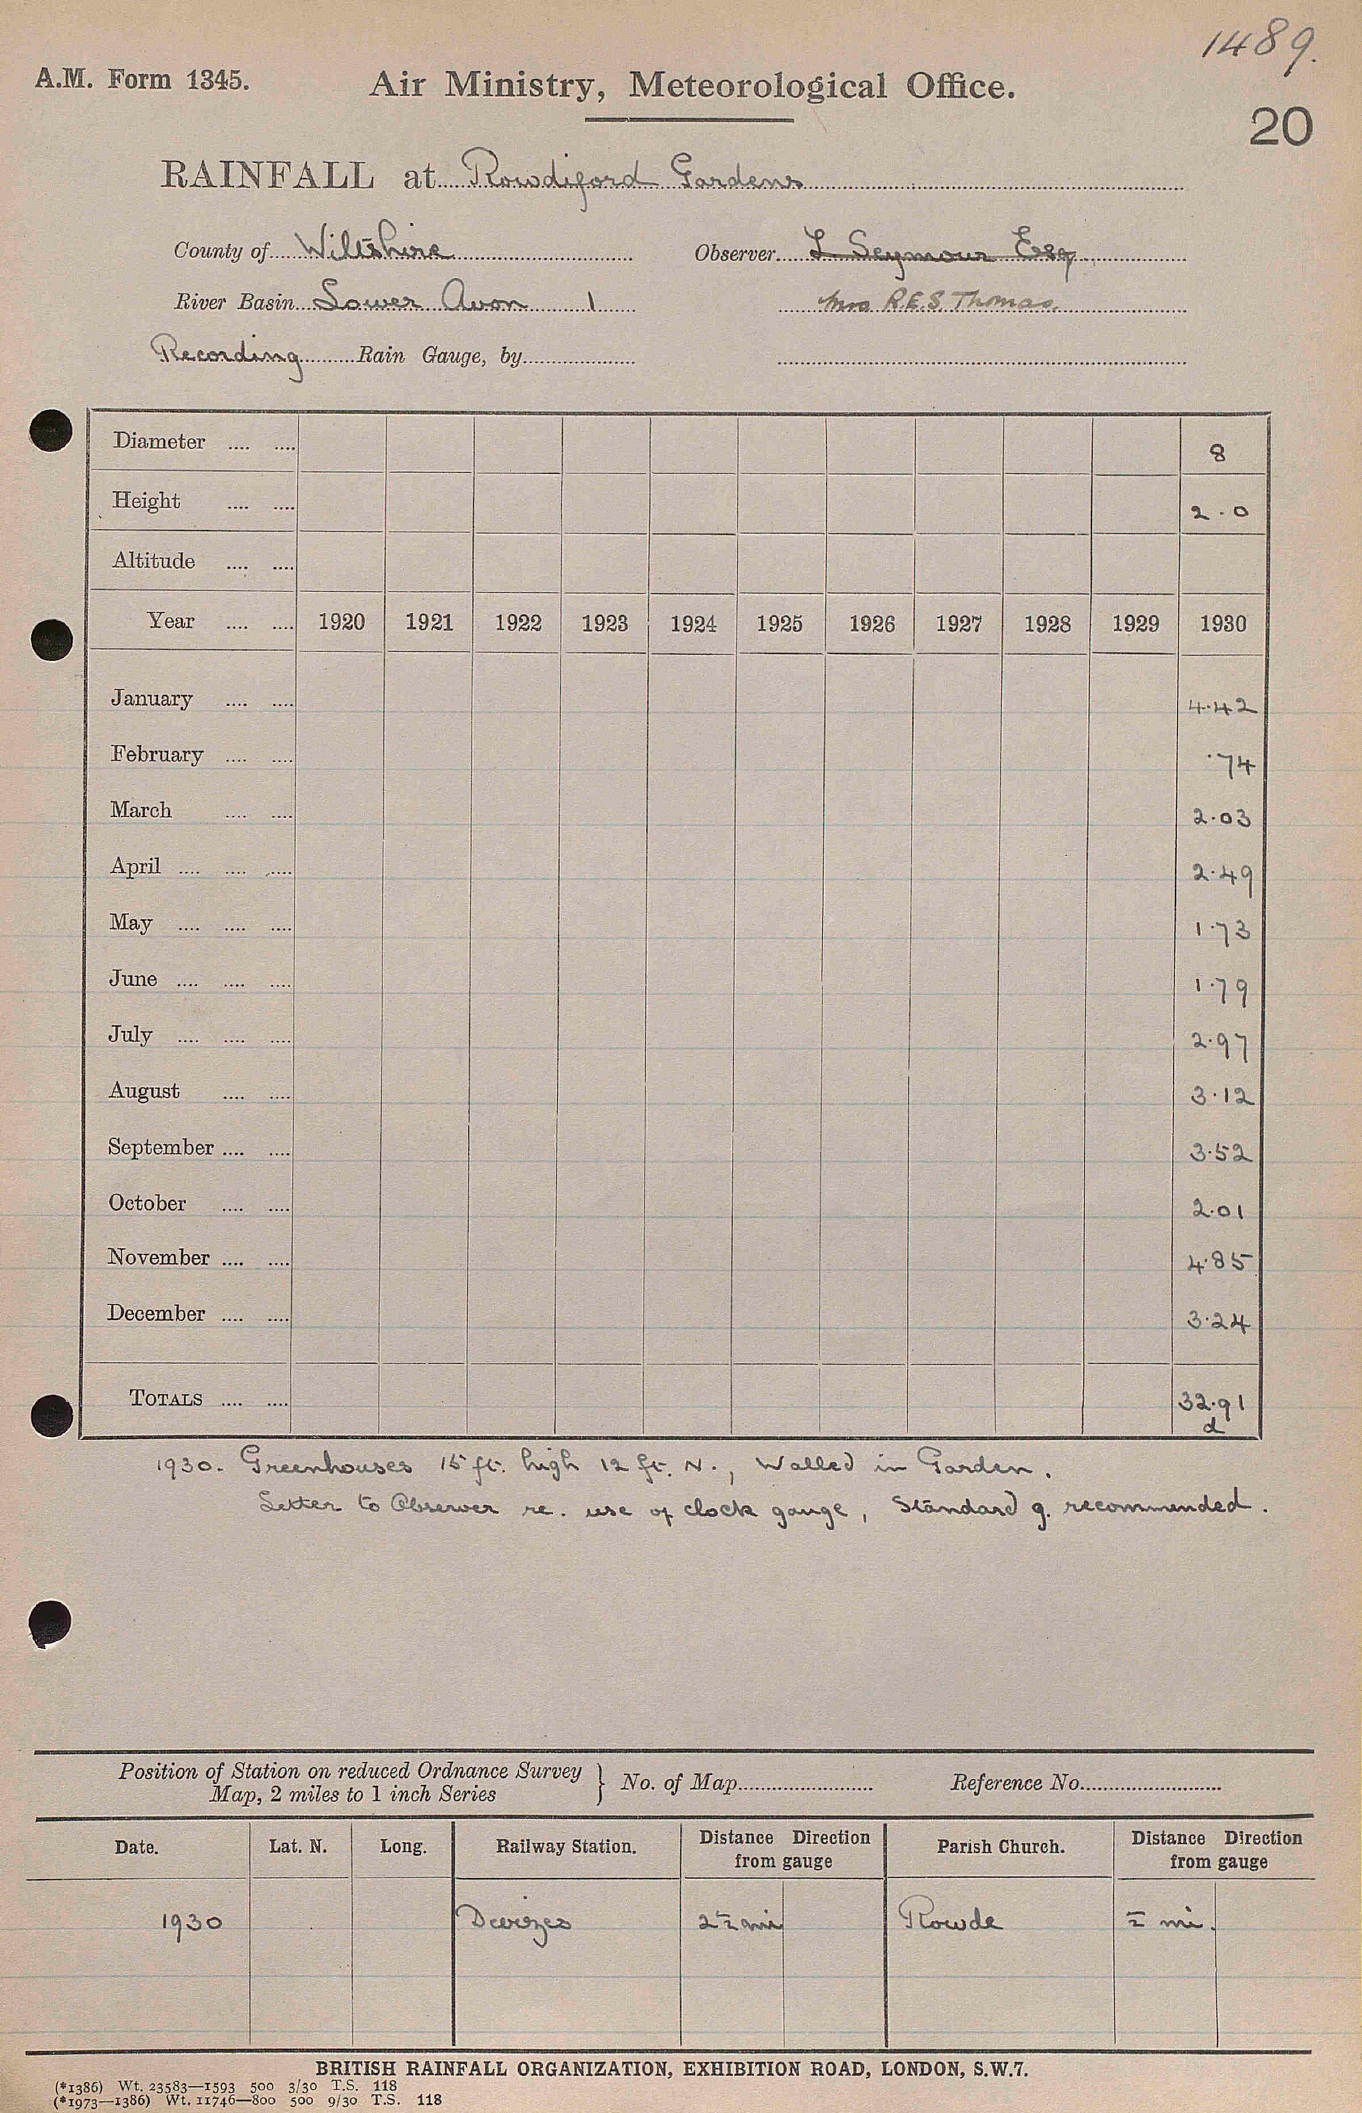 1489.
A.M. Form 1345. Air Ministry, Meteorological Office.
20
RAINFALL at Rowdiford Gardens
County of Wiltshire Observer L Seymour Esq
River Basin Lower Avon 1 Mrs R.E.S Thomas.
Recording Rain Gauge, by
Diameter .... .... 8
Height .... .... 2.0
Altitude .... ....
Year .... .... 1920 1921 1922 1923 1924 1925 1926 1927 1928 1929 1930
January .... .... 4.42
February .... .... .74
March .... .... 2.03
April .... .... .... 2.49
May .... .... .... 1.73
June .... .... .... 1.79
July .... .... .... 2.97
August .... .... 3.12
September .... .... 3.52
October .... .... 2.01
November .... .... 4.85
December .... .... 3.24
TOTALS .... .... 32.91
d
1930. Greenhouses 15 ft. high 12 ft. N., Walled in Garden.
Letter to Observer re. use of clock gauge, Standard g. recommended.
Position of Station on reduced Ordnance Survey
Map, 2 miles to 1 inch Series } No. of Map Reference No.
Date. Lat. N. Long. Railway Station. Distance Direction from gauge Parish Church. Distance Direction from gauge
1930 Devizes 2½ mi Rowde ½ mi.
BRITISH RAINFALL ORGANIZATION, EXHIBITION ROAD, LONDON, S.W.7.
(*1386) Wt. 23583—1593 500 3/30 T.S. 118
(*1973—1386) Wt. 11746—800 500 9/30 T.S. 118